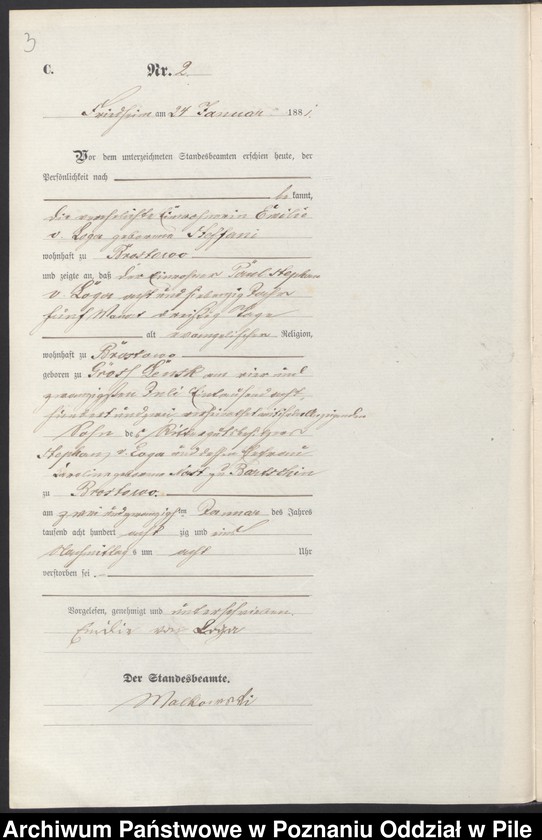 3
C. Nr. 2.
Friedheim am 24 Januar 1881.
Vor dem unterzeichneten Standesbeamten erschien heute, der
Persönlichkeit nach
be kannt,
die verehelichte Einwohnerin Emilie
v. Loga geborene Steffani
wohnhaft zu Brostowo
und zeigte an, daß der Einwohner Paul Stephan
v. Loga acht und siebenzig Jahr
fünf Monat dreißig Tage
alt evangelischer Religion,
wohnhaft zu Brostowo
geboren zu Groß am vier und
zwanzigsten Juli Eintausend acht
hundert und zwei, verheirathet mit
Sohn des Rittergutsbesitzers
Stephan v. Loga und dessen Ehefrau
Carolina geborene zu Bartschin
zu Brostowo.
am zwei und zwanzigsten Januar des Jahres
tausend acht hundert acht zig und eins
Nachmittags um acht Uhr
verstorben sei.
Vorgelesen, genehmigt und unterschrieben.
Emilie von Loga
Der Standesbeamte.
Malkowski
Archiwum Państwowe w Poznaniu Oddział w Pile